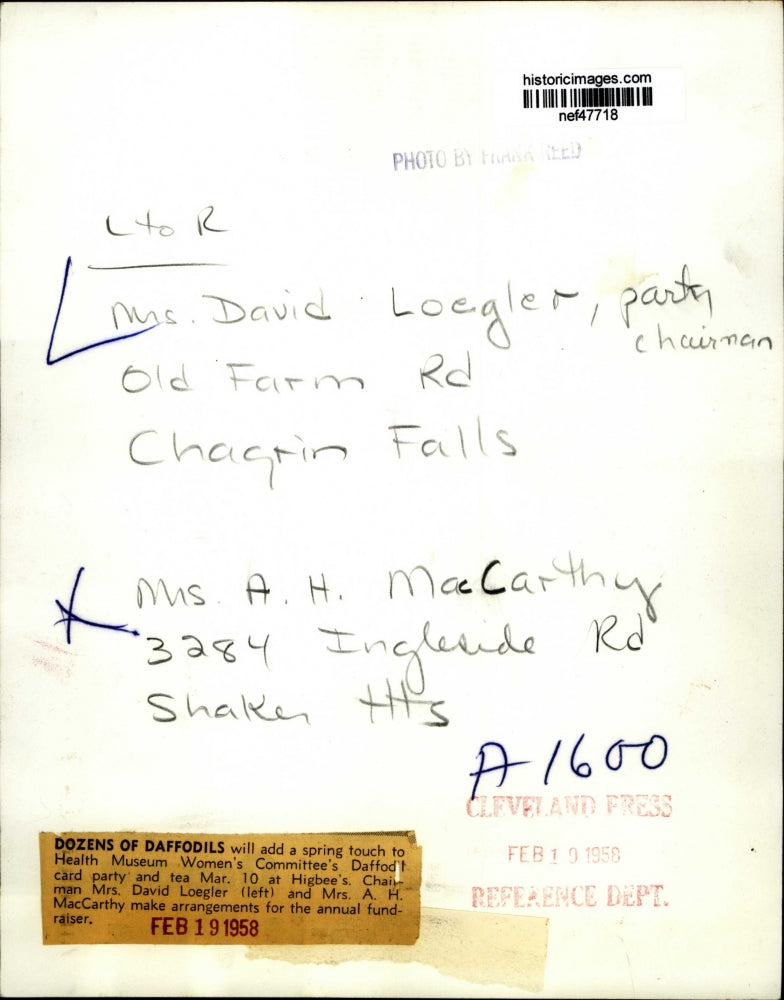 historicimages.com
nef47718
PHOTO BY FRANK REED
L to R
Mrs. David Loegler, party
chairman
Old Farm Rd
Chagrin Falls
Mrs. A. H. MacCarthy
3284 Ingleside Rd
Shaker Hts
A-1600
CLEVELAND PRESS
FEB 19 1958
REFERENCE DEPT.
DOZENS OF DAFFODILS will add a spring touch to
Health Museum Women's Committee's Daffodil
card party and tea Mar. 10 at Higbee's. Chair-
man Mrs. David Loegler (left) and Mrs. A. H.
MacCarthy make arrangements for the annual fund-
raiser.
FEB 19 1958